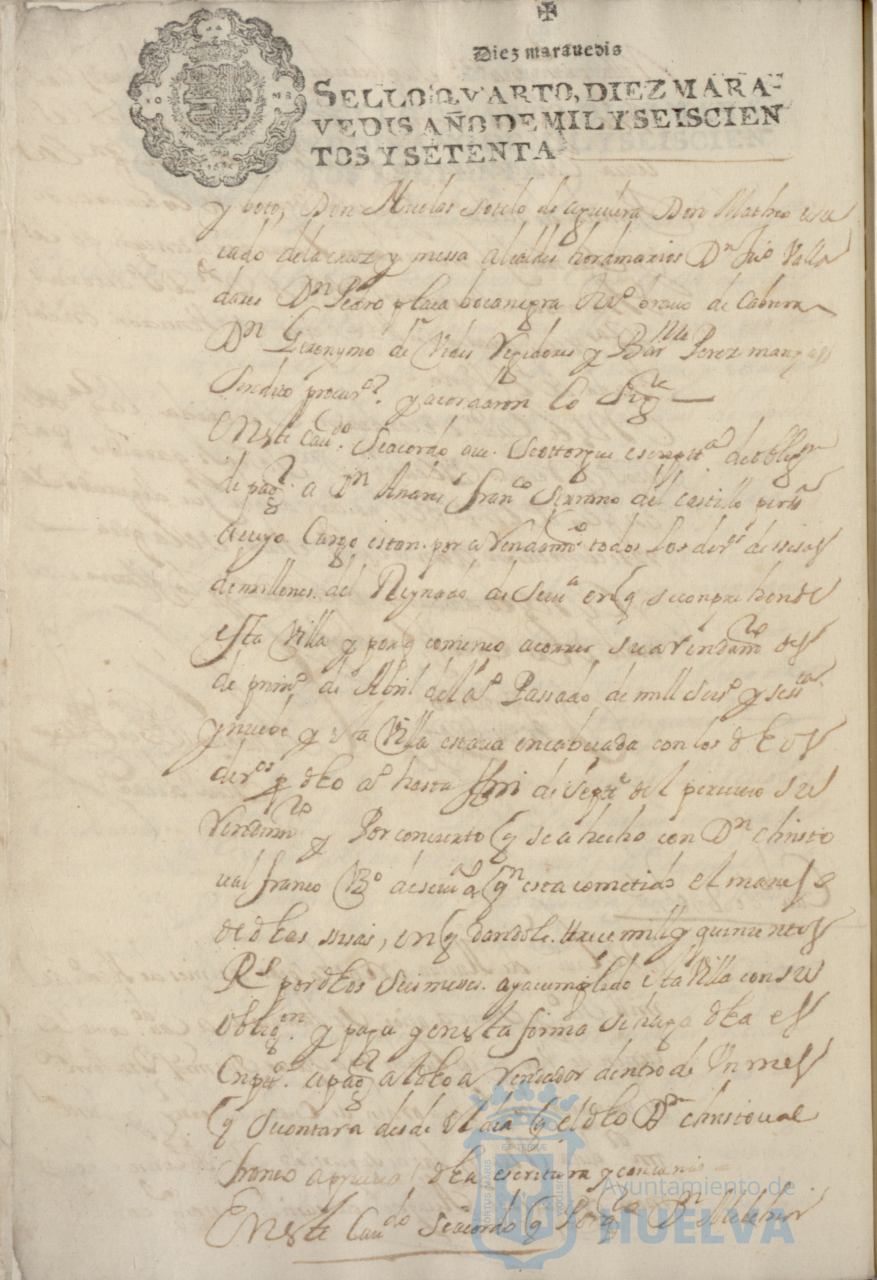 Diez maravedis
SELLO QVARTO, DIEZ MARA-
VEDIS, AÑO DE MIL Y SEISCIEN
TOS Y SETENTA
y Soto, Don Nicolas Sotelo de aguilera Don Matheo
cado de la cruz y messa alcaldes hordinarios Dn Juo Valla
dares Dn Pedro plaza bocanegra brauo de Cabrera
Dn Geronymo de Vides Regidores y Barme Perez
Sindico procuror y acordaron lo Sigte
En este Caudo Seacordo que Seottorgue escriptta de obligon
de pago a Dn Andres franco Serrano del castillo
a cuyo Cargo estan por a Rendamto todos los ders de sisas
de millones del Reynado de Seua en q secomprehende
esta Villa y porq comenco acorrer su a Rendamto des
de primo de Abril del ao Passado de mill Seiso y sesta
y nueve y esta Villa estaua encabecada con los dhos
ders dho ao hasta fin de Septe del
Rendamto y Por concierto q se a hecho con Dn christo
ual franco Vo de seuia a qn esta cometido el manejo
de dhas sisas, en q dandole trece mill y quinientos
Rs por dhos Seis messes aya cumplido esta Villa con su
obligon y paga y en esta forma se haga dha es
Criptra de pago al dho a Rendador dentro de Un mes
q Secontara desde el dia q el dho Dn christoual
franco aprueue dha escritura y concierto
En este Caudo Seacordo q Dn Melchor
PORTUS MARIS
Ayuntamiento de
HUELVA